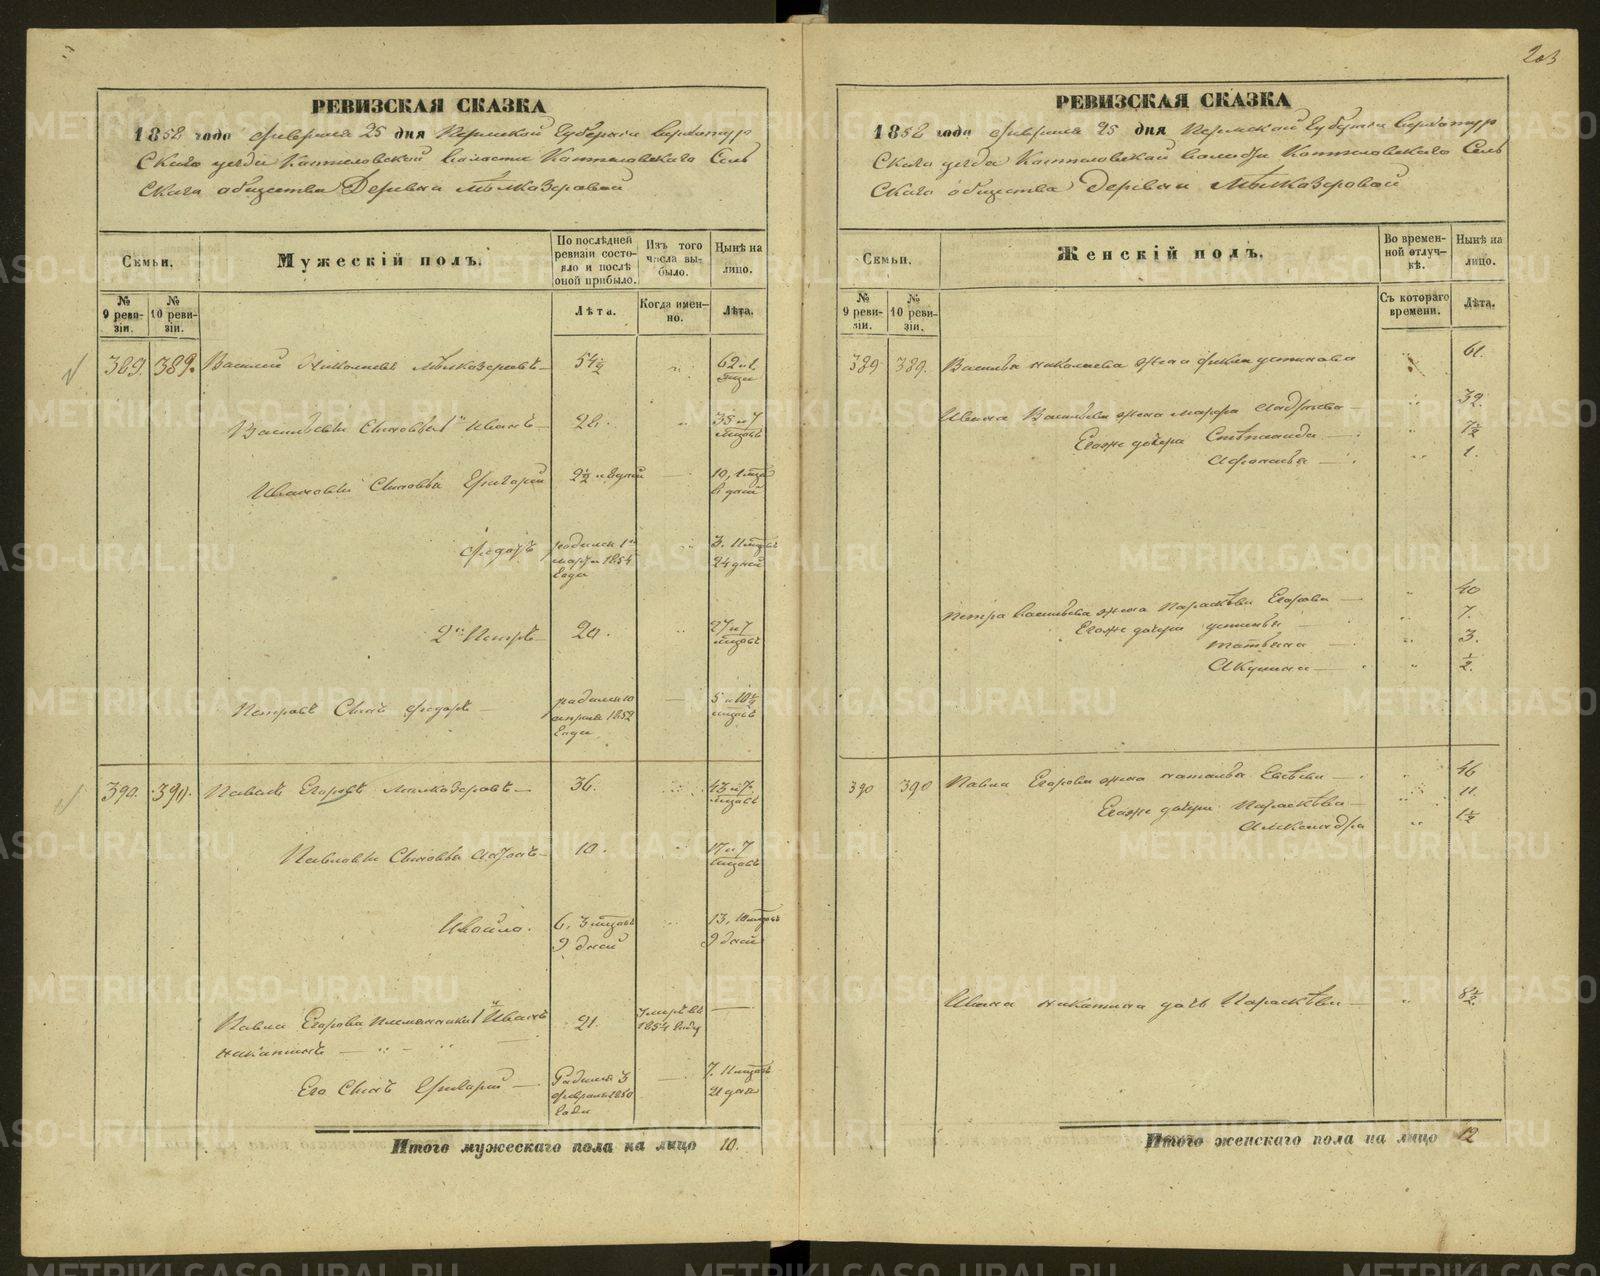 203
РЕВИЗСКАЯ СКАЗКА
1858 года февраля 25 дня Пермской Губернии Верхотур
Скаго уезда Коптеловской Волости Коптеловскаго Сель
Скаго общества Деревни Мѣлкозеровой
Семьи.
Мужескій полъ.
По послѣдней ревизіи состояло и послѣ оной прибыло.
Изъ того числа выбыло.
Нынѣ на лицо.
№ 9 ревизіи.
№ 10 ревизіи.
Лѣта.
Когда именно.
Лѣта.
389. 389. Василий Николаевъ Мѣлкозеровъ 54½ 62 и 1.
Васильевы Сыновья 1й Иванъ 28. 35 и 7 мѣсяцовъ
Ивановы Сыновья Григорий 2½ 10,
6 дней
Федотъ родился 1го марта 1854 Года 3. 11 мѣсяцовъ 24 дней
2й Петръ 20. 27 и 7 мѣсяцовъ
Петровъ Сынъ Федоръ родился апреля 1852 Года 5 и 10½ мѣсяцовъ
390. 390. Павелъ Егоровъ Мѣлкозеровъ 36. 43 и 7 мѣсяцовъ
Павловы Сыновья 10. 17 и 7 мѣсяцовъ
6, 3 мѣсяцовъ 9 дней 13, 10 мѣсяцовъ 9 дней
Павла Егорова племянникъ Иванъ 21. Умеръ въ 1854 Году
Никитинъ
Его Сынъ Григорий Родился 3 февраля 1850 Года 7. 11 мѣсяцовъ 21 день
Итого мужескаго пола на лицо 10.
РЕВИЗСКАЯ СКАЗКА
1858 года февраля 25 дня Пермской Губернии Верхотур
Скаго уезда Коптеловской волости Коптеловскаго Сель
Скаго общества Деревни Мѣлкозеровой
Семьи.
Женскій полъ.
Во временной отлучкѣ.
Нынѣ на лицо.
№ 9 ревизіи.
№ 10 ревизіи.
Съ котораго времени.
Лѣта.
389 389. Василья Николаева жена Фекла Устинова 61.
Ивана Васильева жена Марфа 32.
Егоже дочери Степанида 7½
Афанасья 1.
Петра Васильева жена Парасковья Егорова 40
Егоже дочери Устинья 7.
Татьяна 3.
Акулина ½.
390 390 Павла Егорова жена Наталья 46
Егоже дочери Парасковья 11.
Александра 1½
Ивана Никитина дочь Парасковья 8½.
Итого женскаго пола на лицо 12
METRIKI.GASO-URAL.RU